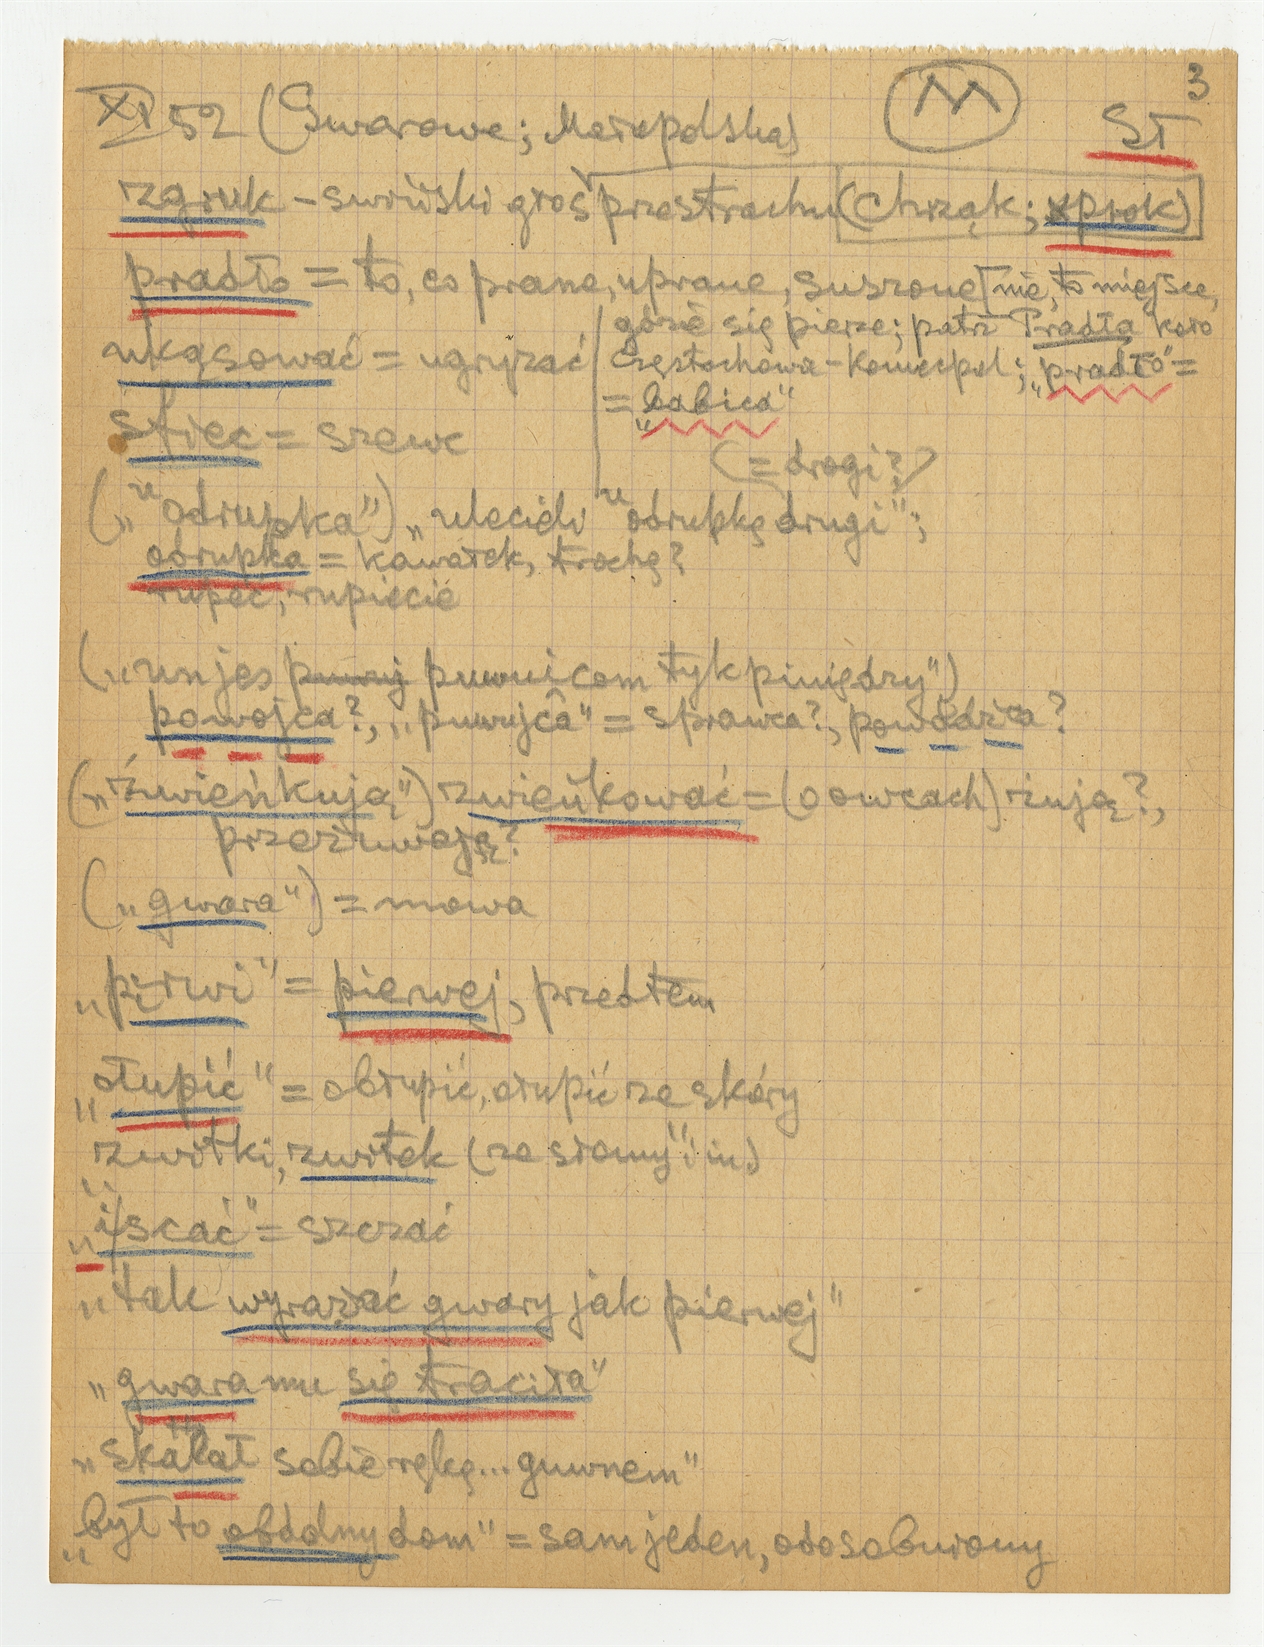 3
XI 52 (Gwarowe; Małopolska) M SŁ
rzgruk – świński głos przestrachu (chrząk;
pradło = to, co prane, uprane, suszone [nie, to miejsce,
gdzie się pierze; patrz "Pradła" koło
Częstochowa – Koniecpol; „pradło" =
= „babica"
ukąsować = ugryzać
sfiec = szewc
(= drogi?)
(„u odrupka") „ulecieli u odrupkę drugi";
odrupka = kawałek, trochę?
rupeć, rupiecie
(„un jes puwuj puwuicom tyk piniędzy")
powojca?, „puwujca" = sprawca?, powódźca?
(„żwieńkują") zwieńkować = (o owcach) żują?,
przeżuwają?
(„gwara") = mowa
„pirwi" = pierwej, przedtem
„ołupić" = obłupić, ołupić ze skóry
zwitki, zwitek (ze słomy i in.)
„iscać" = szczać
„tak wyrażać gwary jak pierwej"
„gwara mu się traciła"
„skalał sobie rękę... guwnem"
„był to obdolny dom" = sam jeden, odosobniony